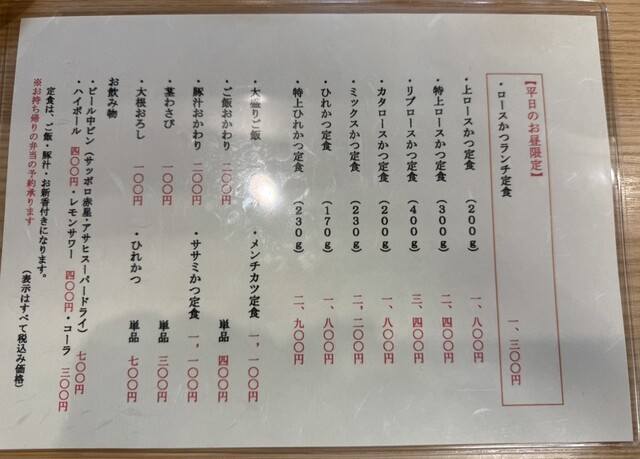 【平日のお昼限定】
・ロースかつランチ定食 一、三〇〇円
・上ロースかつ定食 (200g) 一、八〇〇円
・特上ロースかつ定食 (300g) 二、四〇〇円
・リブロースかつ定食 (400g) 三、四〇〇円
・カタロースかつ定食 (200g) 一、八〇〇円
・ミックスかつ定食 (230g) 二、二〇〇円
・ひれかつ定食 (170g) 一、八〇〇円
・特上ひれかつ定食 (230g) 二、九〇〇円
・大盛りご飯 ・メンチカツ定食 一、一〇〇円
・ご飯おかわり 二〇〇円 単品 四〇〇円
・豚汁おかわり 二〇〇円 ・ササミかつ定食 一、一〇〇円
・茎わさび 一〇〇円 単品 三〇〇円
・大根おろし 一〇〇円 ・ひれかつ 単品 七〇〇円
お飲み物
・ビール中ビン(サッポロ赤星・アサヒスーパードライ) 七〇〇円
・ハイボール 四〇〇円・レモンサワー 四〇〇円・コーラ 三〇〇円
定食は、ご飯・豚汁・お新香付きになります。 (表示はすべて税込み価格)
※お持ち帰りの弁当の予約承ります